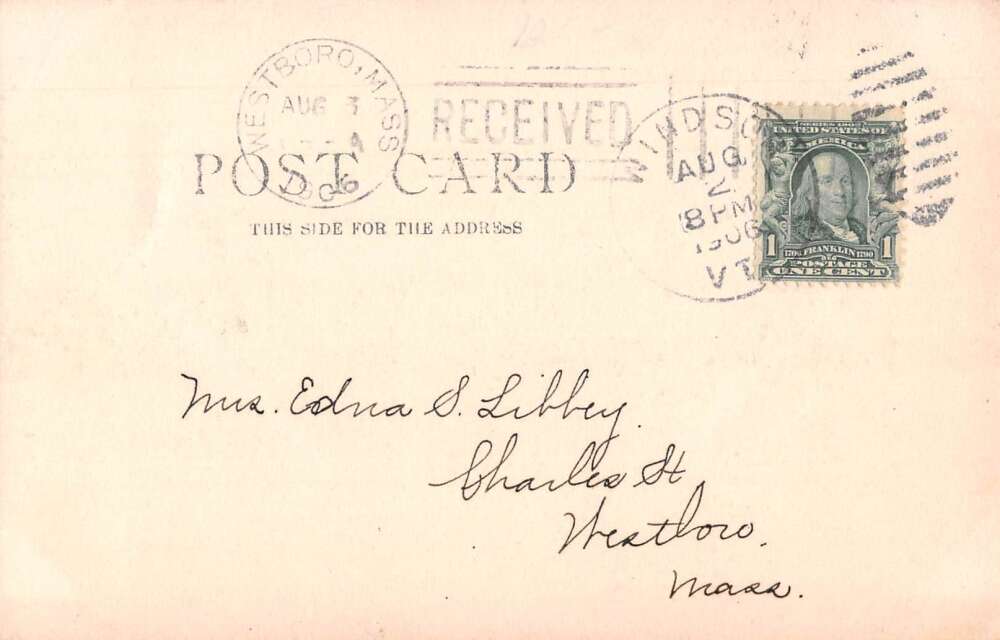 WESTBORO, MASS
AUG 3
A
1906
RECEIVED
WINDSOR
AUG
2
8 PM
1906
VT
SERIES 1902
UNITED STATES OF
AMERICA
1 1
FRANKLIN 1790
POSTAGE
ONE CENT
POST CARD
THIS SIDE FOR THE ADDRESS
Mrs. Edna S. Libbey.
Charles St
Westboro.
Mass.